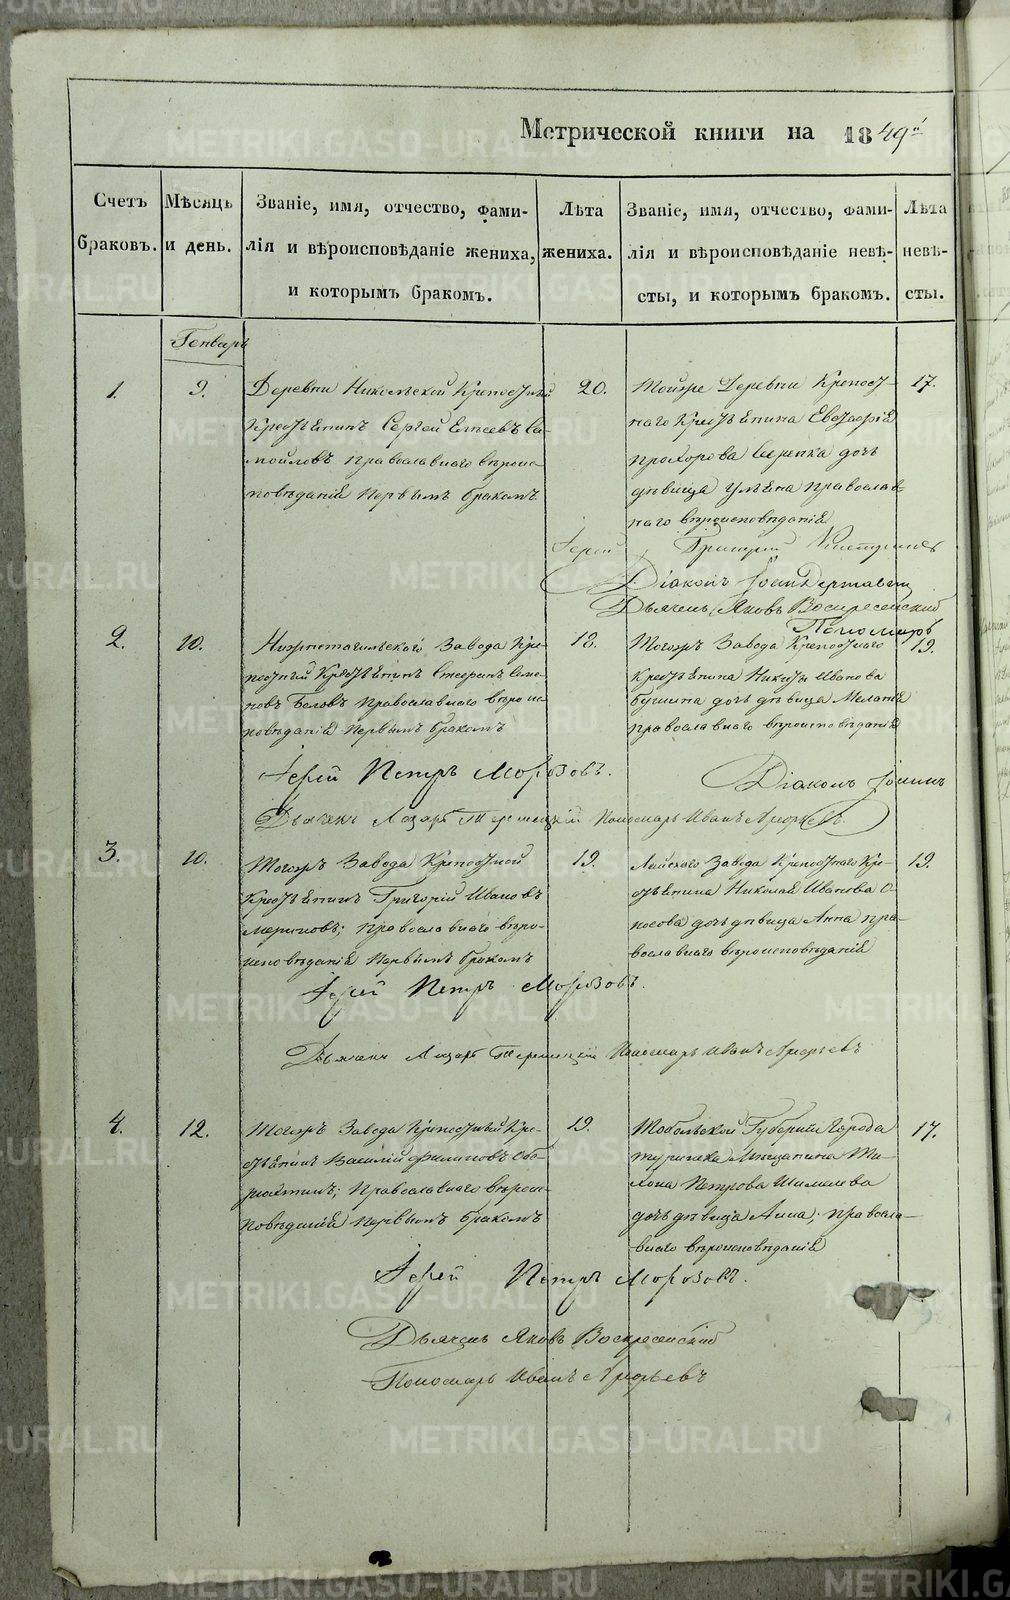 Метрической книги на 1849й
Счетъ браковъ.
Мѣсяцъ и день.
Званіе, имя, отчество, фами-
лія и вѣроисповѣданіе жениха,
и которымъ бракомъ.
Лѣта жениха.
Званіе, имя, отчество, фами-
лія и вѣроисповѣданіе невѣ-
сты, и которымъ бракомъ.
Лѣта невѣ-
сты.
Генварь
1.
9.
Деревни Никольской Крепостный
Крестьянинъ Сергей Са-
мойловъ православнаго вѣроис-
повѣданія первымъ бракомъ
20.
Тойже Деревни Крепост-
наго Крестьянина
Прохорова дочь
дѣвица Ульяна православ-
наго вѣроисповѣданія
17.
Іерей Григорій
Діаконъ Іоаннъ
Дьячекъ Яковъ Воскресенскій
Пономарь
2.
10.
Нижнетагильского Завода Кре-
постный Крестьянинъ Семе-
новъ Бѣловъ православнаго вѣроис-
повѣданія первымъ бракомъ
18.
Тогожъ Завода Крепостнаго
Крестьянина Никиты Иванова
дочь дѣвица
православнаго вѣроисповѣданія
19.
Іерей Петръ Морозовъ.
Діаконъ Іоаннъ
Дьячекъ Лазарь Пономарь Иванъ Арефьевъ
3.
10.
Тогожъ Завода Крепостной
Крестьянинъ Григорій Ивановъ
православнаго вѣро-
исповѣданія первымъ бракомъ
19.
Лайского Завода Крепостнаго Кре-
стьянина Николая Иванова О-
носова дочь дѣвица Анна пра-
вославнаго вѣроисповѣданія
19.
Іерей Петръ Морозовъ.
Дьячекъ Лазарь Пономарь Иванъ Арефьевъ
4.
12.
Тогожъ Завода Крепостный Кре-
стьянинъ Василій Филиповъ
православнаго вѣроис-
повѣданія первымъ бракомъ
19.
Тобольской Губерніи города
Туринска Мѣщанина
Петрова
дочь дѣвица Анна, правосла-
внаго вѣроисповѣданія
17.
Іерей Петръ Морозовъ.
Дьячекъ Яковъ Воскресенскій
Пономарь Иванъ Арефьевъ
METRIKI.GASO-URAL.RU